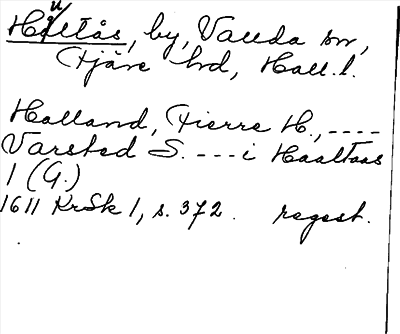 Hultås, by, Valda sn,
Fjäre hrd, Hall. l.
Halland, Fierre H., ----
Varsted S. --- i Haaltaas
1 (G.)
1611 KrSk 1, s. 372. regest.